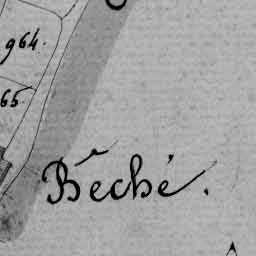 964.
65.
Béché.